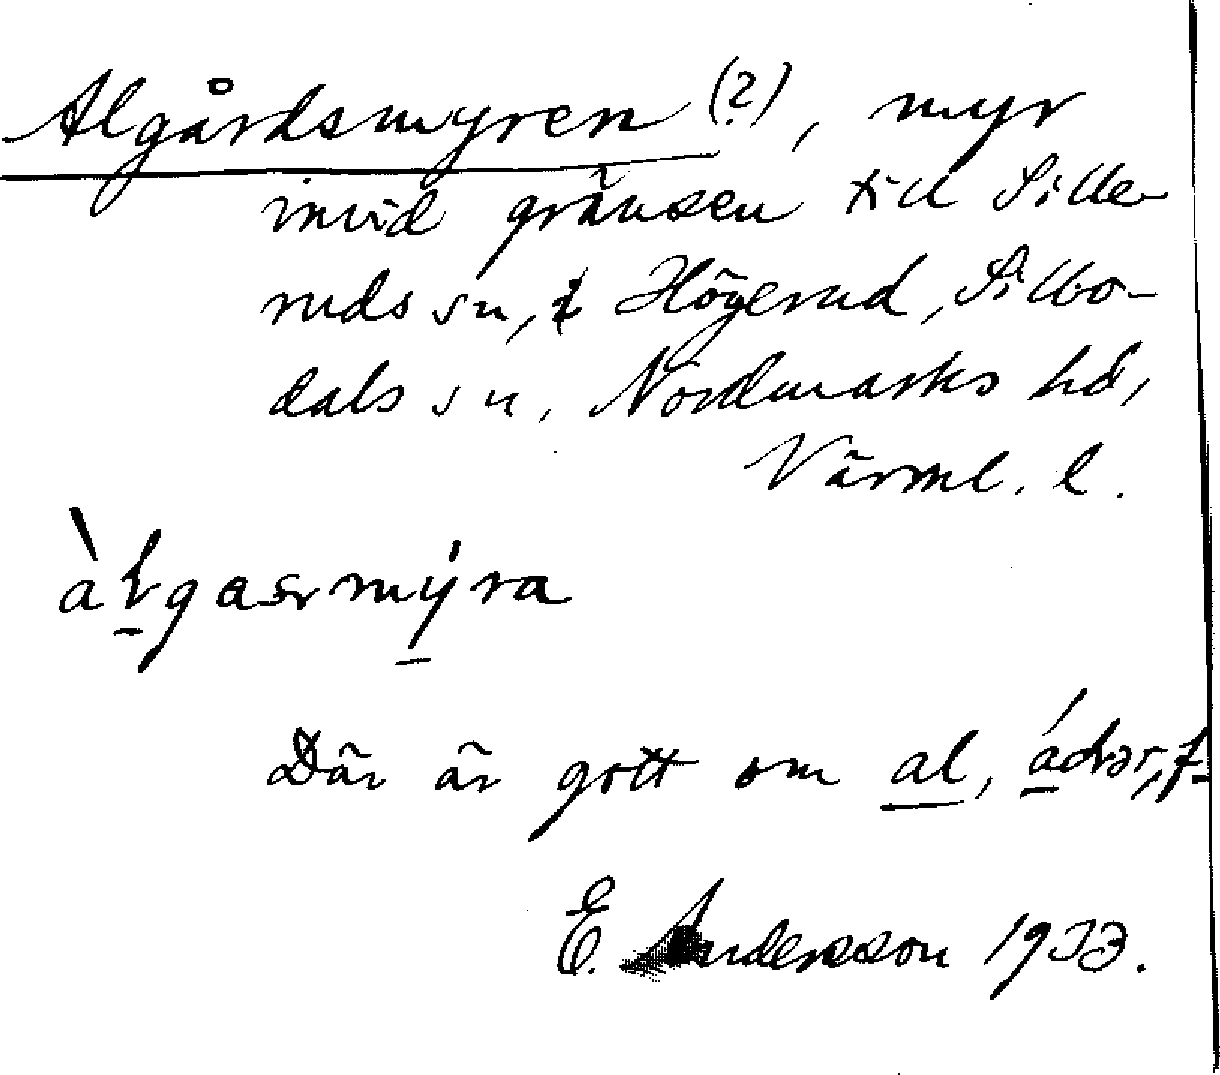 Algårdsmyren (?), myr
invid gränsen till Sille-
ruds sn, i Högerud, Silbo-
dals sn, Nordmarks hd,
Värml. l.
Där är gott om al, f.
E. Andersson 1933.